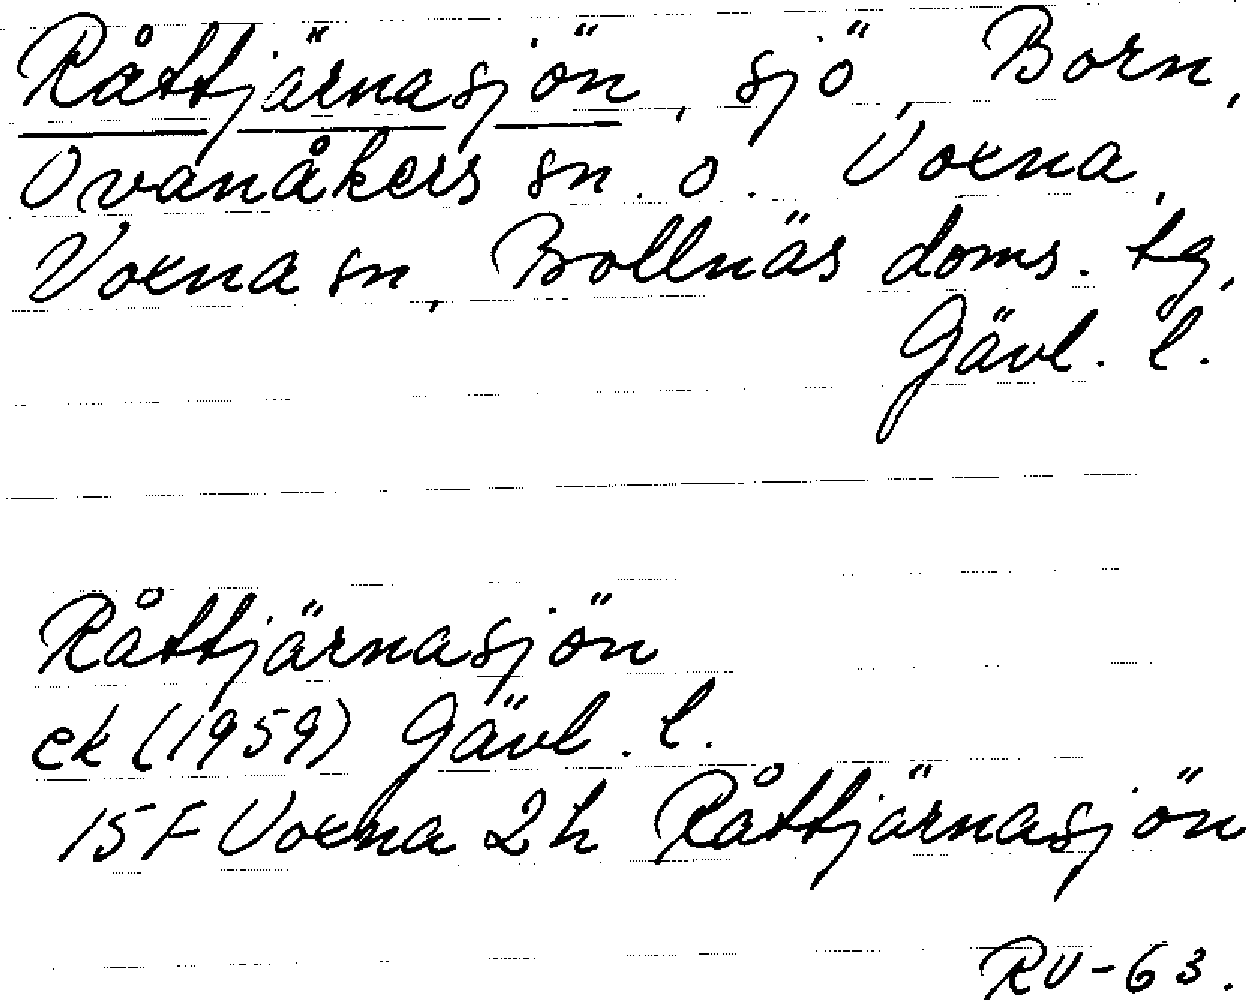 Råttjärnasjön, sjö, Born,
Ovanåkers sn. o. Voxna,
Voxna sn, Bollnäs doms. tg,
Gävl. l.
Råttjärnasjön
ek (1959) Gävl. l.
15F Voxna 2h Råttjärnasjön
RV-63.